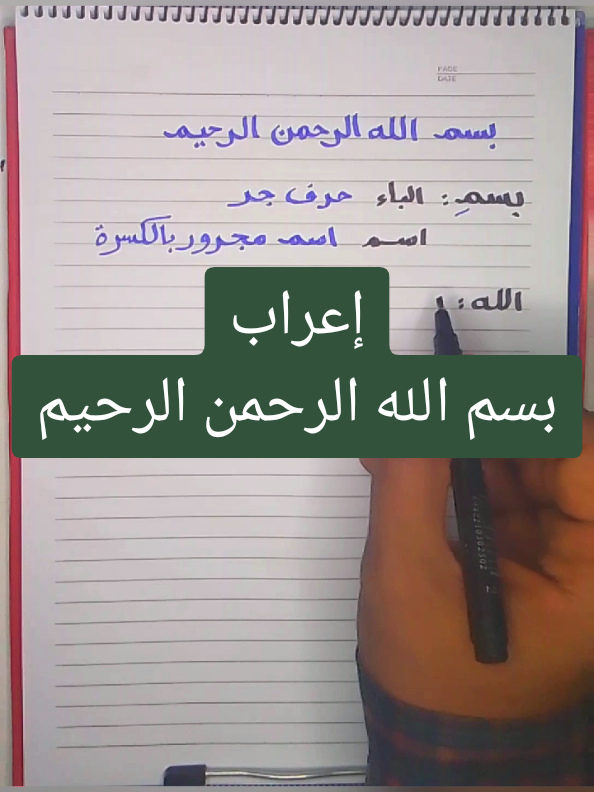 PAGE
DATE
بسم الله الرحمن الرحيم
بسمِ: الباء حرف جر
اسم اسم مجرور بالكسرة
الله:
إعراب
بسم الله الرحمن الرحيم